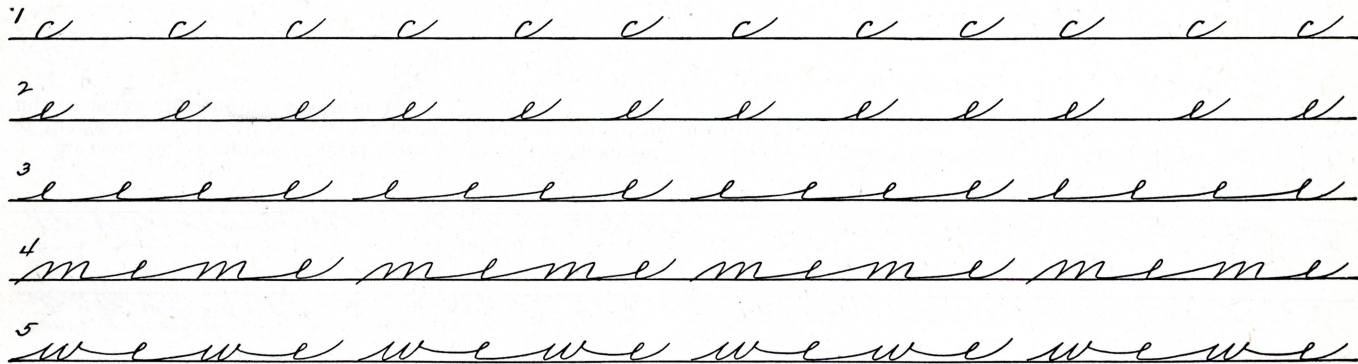 1 c c c c c c c c c c c c
2 e e e e e e e e e e e e
3 eeee eeee eeee eeee
4 meme meme meme meme
5 wewe wewe wewe wewe